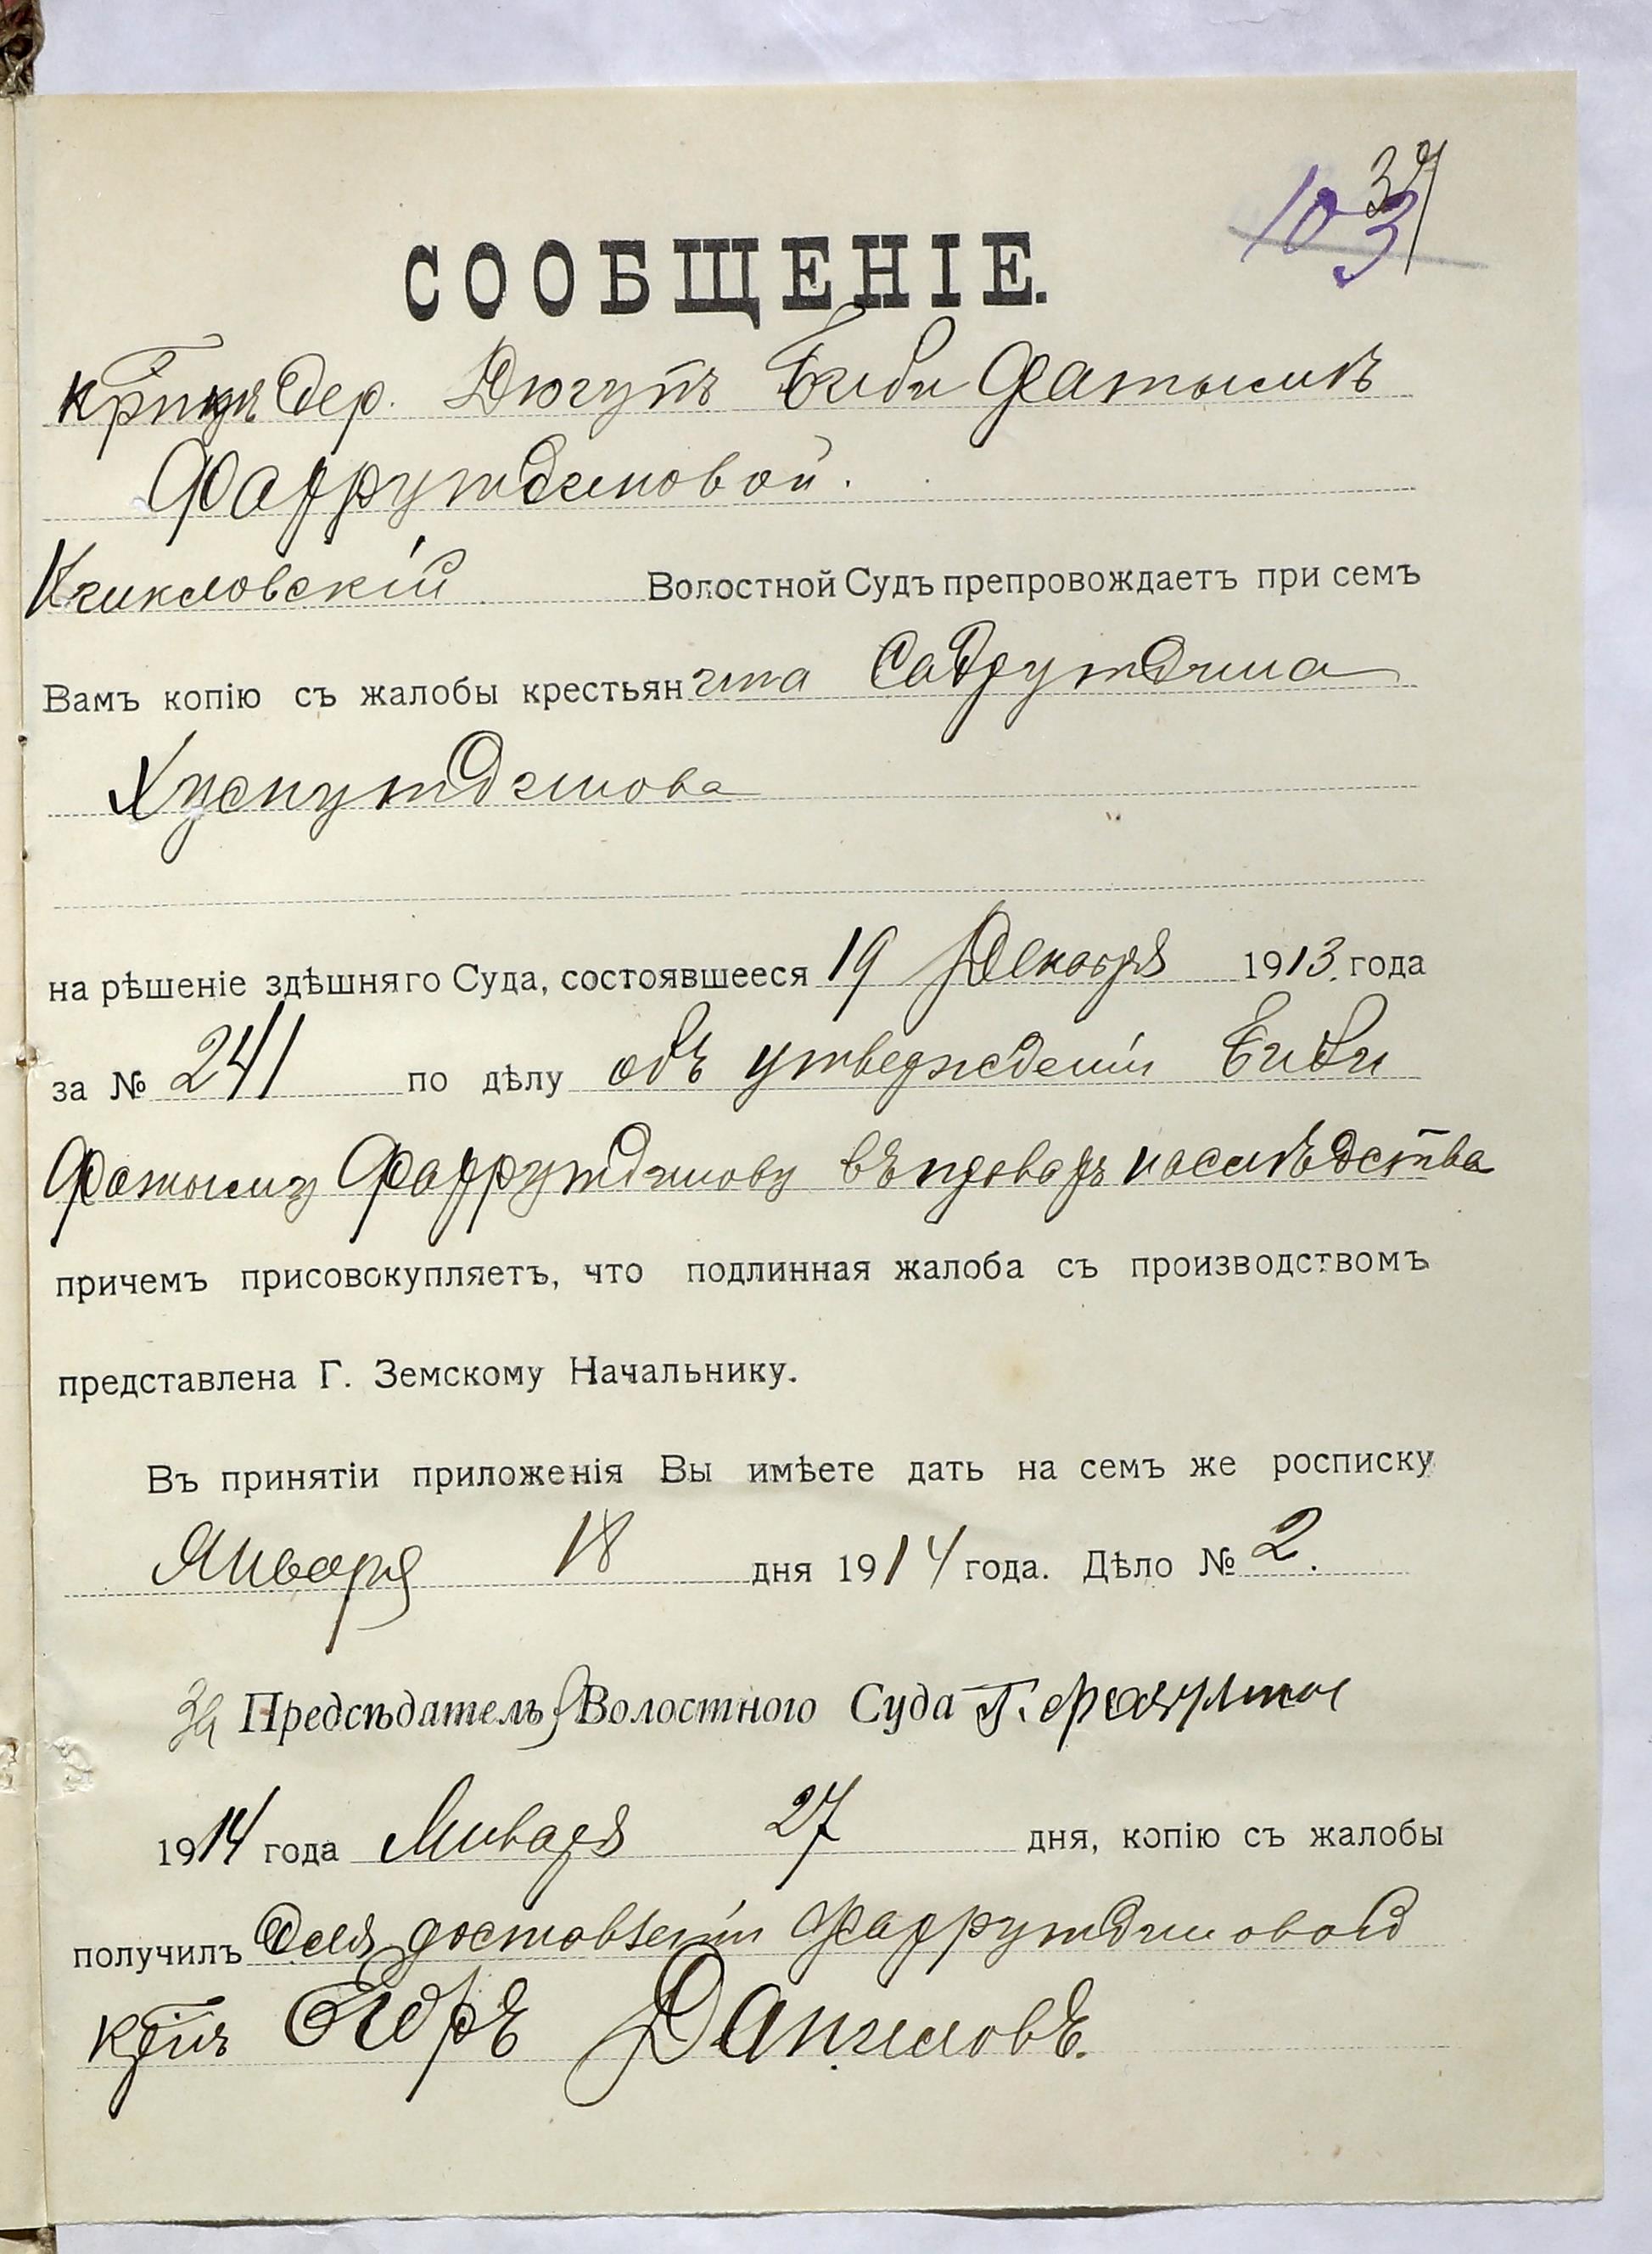 103
34
СООБЩЕНІЕ.
дер. Дюгупъ Биби Фатымѣ
Фаррутдиновой.
Кликловскій Волостной Судъ препровождаетъ при семъ
Вамъ копію съ жалобы крестьянина Садрутдина
Хуснутдинова
на рѣшеніе здѣшняго Суда, состоявшееся 19 Декабря 1913 года
за № 241 по дѣлу объ утвержденіи Биби
Фатыму Фаррутдинову въ правахъ наслѣдства
причемъ присовокупляетъ, что подлинная жалоба съ производствомъ
представлена Г. Земскому Начальнику.
Въ принятіи приложенія Вы имѣете дать на семъ же росписку
Января 18 дня 1914 года. Дѣло № 2.
За Предсѣдателя Волостного Суда
1914 года Января 27 дня, копію съ жалобы
получилъ для доставленіи Фаррутдиновой
Егоръ Даниловъ.